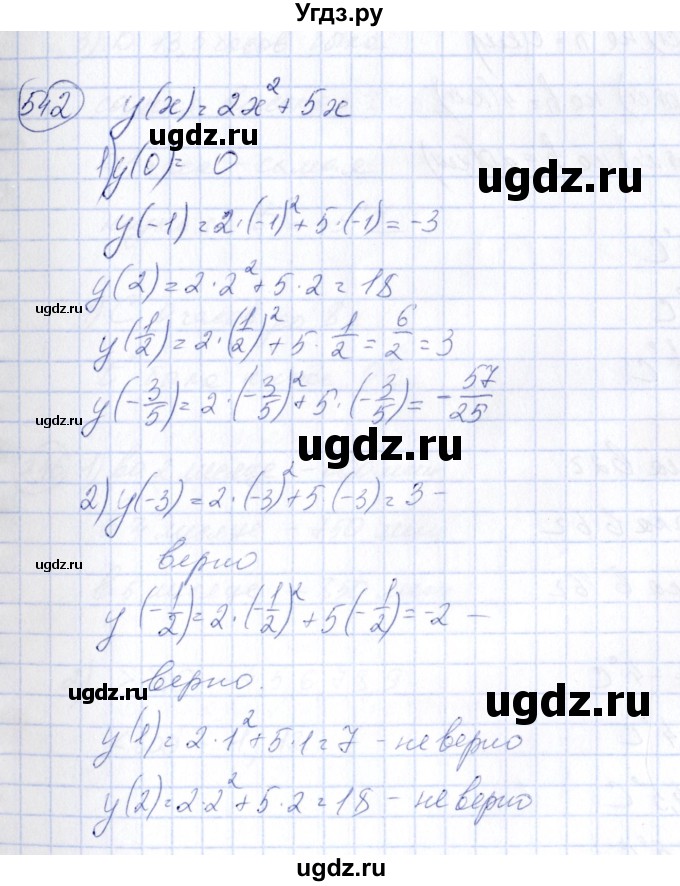 Угдз.ру
542 y(x) = 2x² + 5x
ugdz.ru
ugdz.ru
1) y(0) = 0
y(-1) = 2·(-1)² + 5·(-1) = -3
y(2) = 2·2² + 5·2 = 18
ugdz.ru
y(1/2) = 2·(1/2)² + 5·1/2 = 6/2 = 3
y(-3/5) = 2·(-3/5)² + 5·(-3/5) = -57/25
ugdz.ru
ugdz.ru
2) y(-3) = 2·(-3)² + 5(-3) = 3 -
верно
ugdz.ru
y(-1/2) = 2·(-1/2)² + 5(-1/2) = -2 -
верно.
ugdz.ru
ugdz.ru
y(1) = 2·1² + 5·1 = 7 - не верно
y(2) = 2·2² + 5·2 = 18 - не верно
ugdz.ru